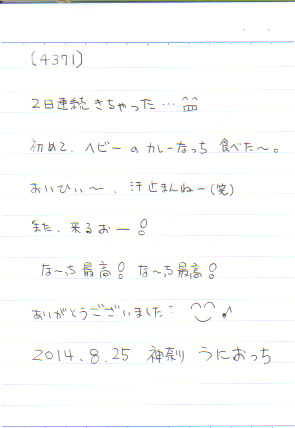 (4371)
2日連続きちゃった…
初めて、ヘビーのカレーなっち食べた〜。
おいひぃ〜、汗止まんねー(笑)
また、来るおー!
な〜っち最高! な〜っち最高!
ありがとうございました: ♪
2014.8.25 神奈川 うにおっち